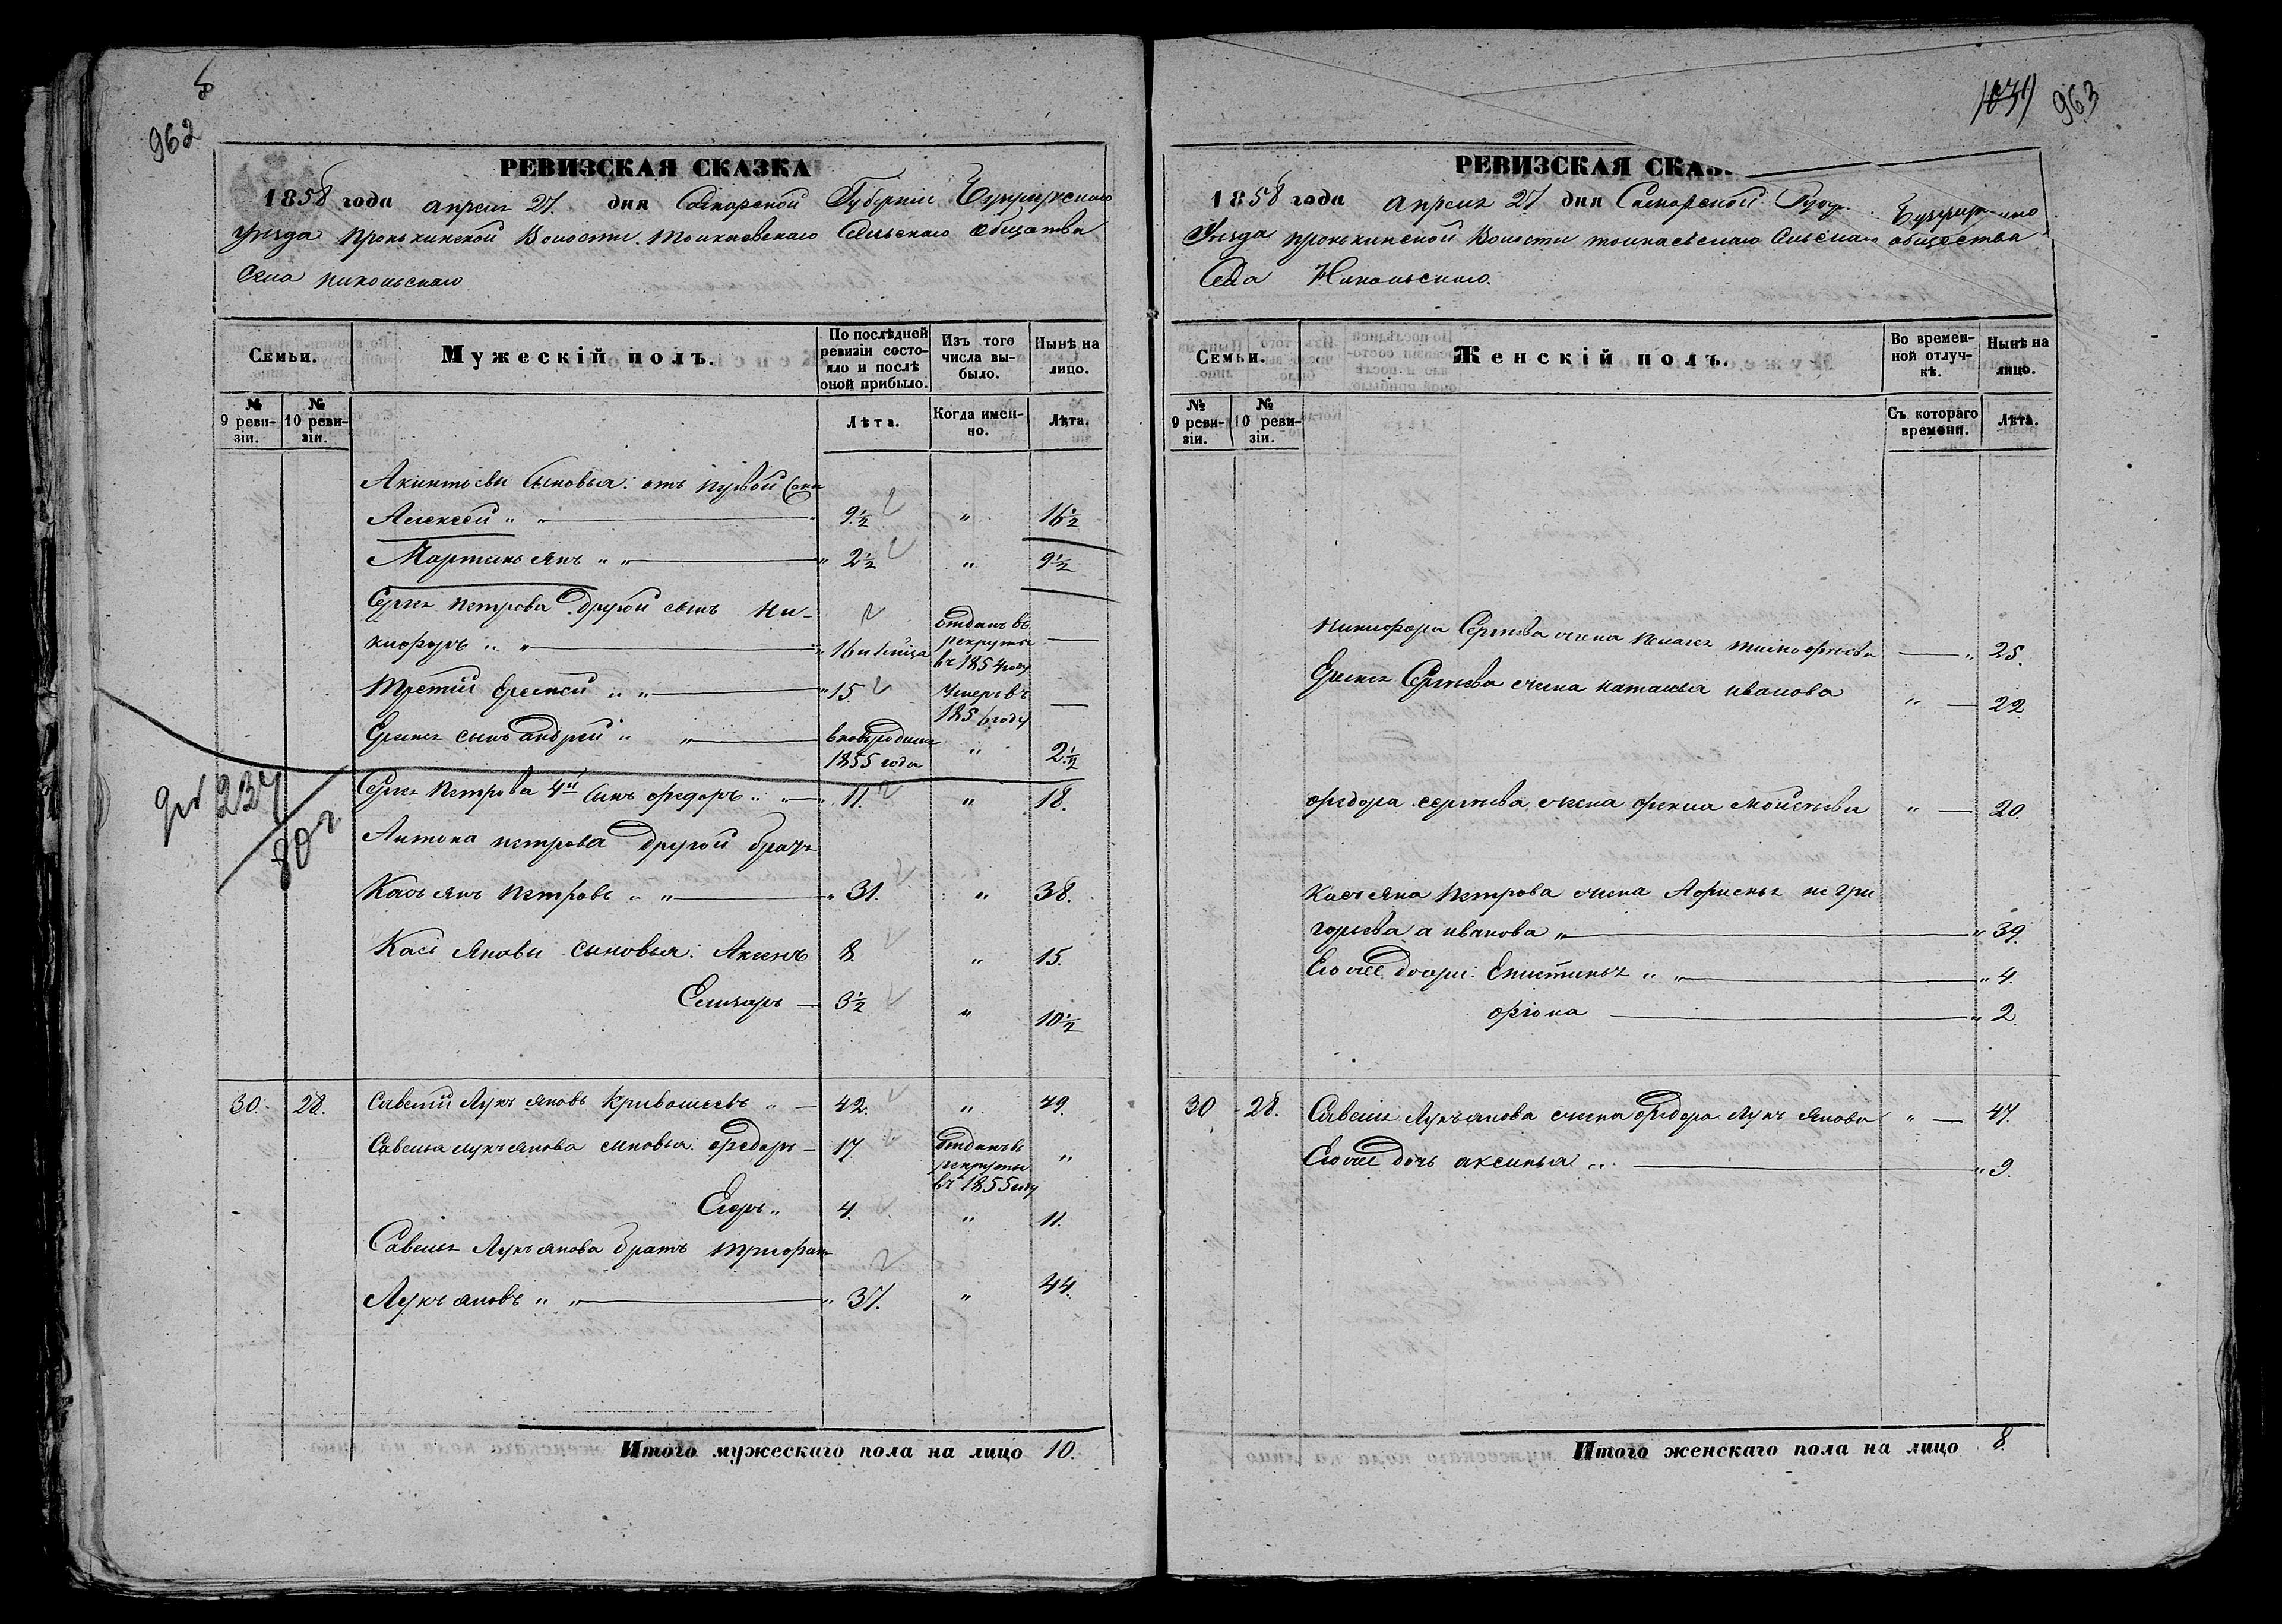 962
РЕВИЗСКАЯ СКАЗКА
1858 года апреля 27. дня Самарской Губернии Бузулукскаго
Уѣзда Пронькинской Волости. Тоикаевскаго Сельскаго Общества
Села Никольскаго
Семьи.
Мужескій полъ.
По послѣдней ревизіи состояло и послѣ оной прибыло.
Изъ того числа выбыло.
Нынѣ на лицо.
№ 9 ревизіи.
№ 10 ревизіи.
Лѣта.
Когда именно.
Лѣта.
сыновья: отъ первой жены
Алексей " " 9½ " 16½
Мартемьянъ " " " 2½ " 9½
Сергея Петрова другой сынъ Ни-
кифоръ " " " 16 отданъ въ рекруты въ 1854 году —
Третій Еремей " " " 15 Умеръ въ 185 году —
Еремея сынъ андрей " " вновь рожденъ 1855 года " 2½
Сергея Петрова 4й сынъ Федоръ " " 11. " 18.
Антона петрова другой братъ
Касьянъ Петровъ " " " 31. " 38.
Касьяновы сыновья: Аксенъ 8. " 15.
3½ " 10½
234
80 г
30. 28. Савелій Лукъяновъ Кривошеевъ " 42. " 49.
Савелья лукъянова сыновья: Федоръ 17. отданъ въ рекруты въ 1855 году "
Егоръ " 4. " 11.
Савелья Лукъянова братъ Трифонъ
Лукъяновъ " " " 37. " 44.
Итого мужескаго пола на лицо 10.
1031 963
РЕВИЗСКАЯ СКАЗ
1858 года апреля 27 дня Самарской Губер.
Уѣзда Пронькинской Волости тоикаевскаго Сельскаго общества
Села Никольскаго.
Семьи.
Женскій полъ.
Во временной отлучкѣ.
Нынѣ на лицо.
№ 9 ревизіи.
№ 10 ревизіи.
Съ котораго времени.
Лѣта.
Никифора Сергеева жена Пелагея тимофеева — " 25.
Еремея Сергеева жена наталья иванова " — 22
Федора сергеева жена фекла Моисеева " — 20.
Касьяна Петрова жена Афимья не Гри
горьева а иванова " " 39.
Его же дочери: Епистимья " " " 4.
фіона " 2.
30 28. Савелья Лукъянова жена федора лукъянова " — 47.
Его же дочь аксинья " " 9.
Итого женскаго пола на лицо 8.